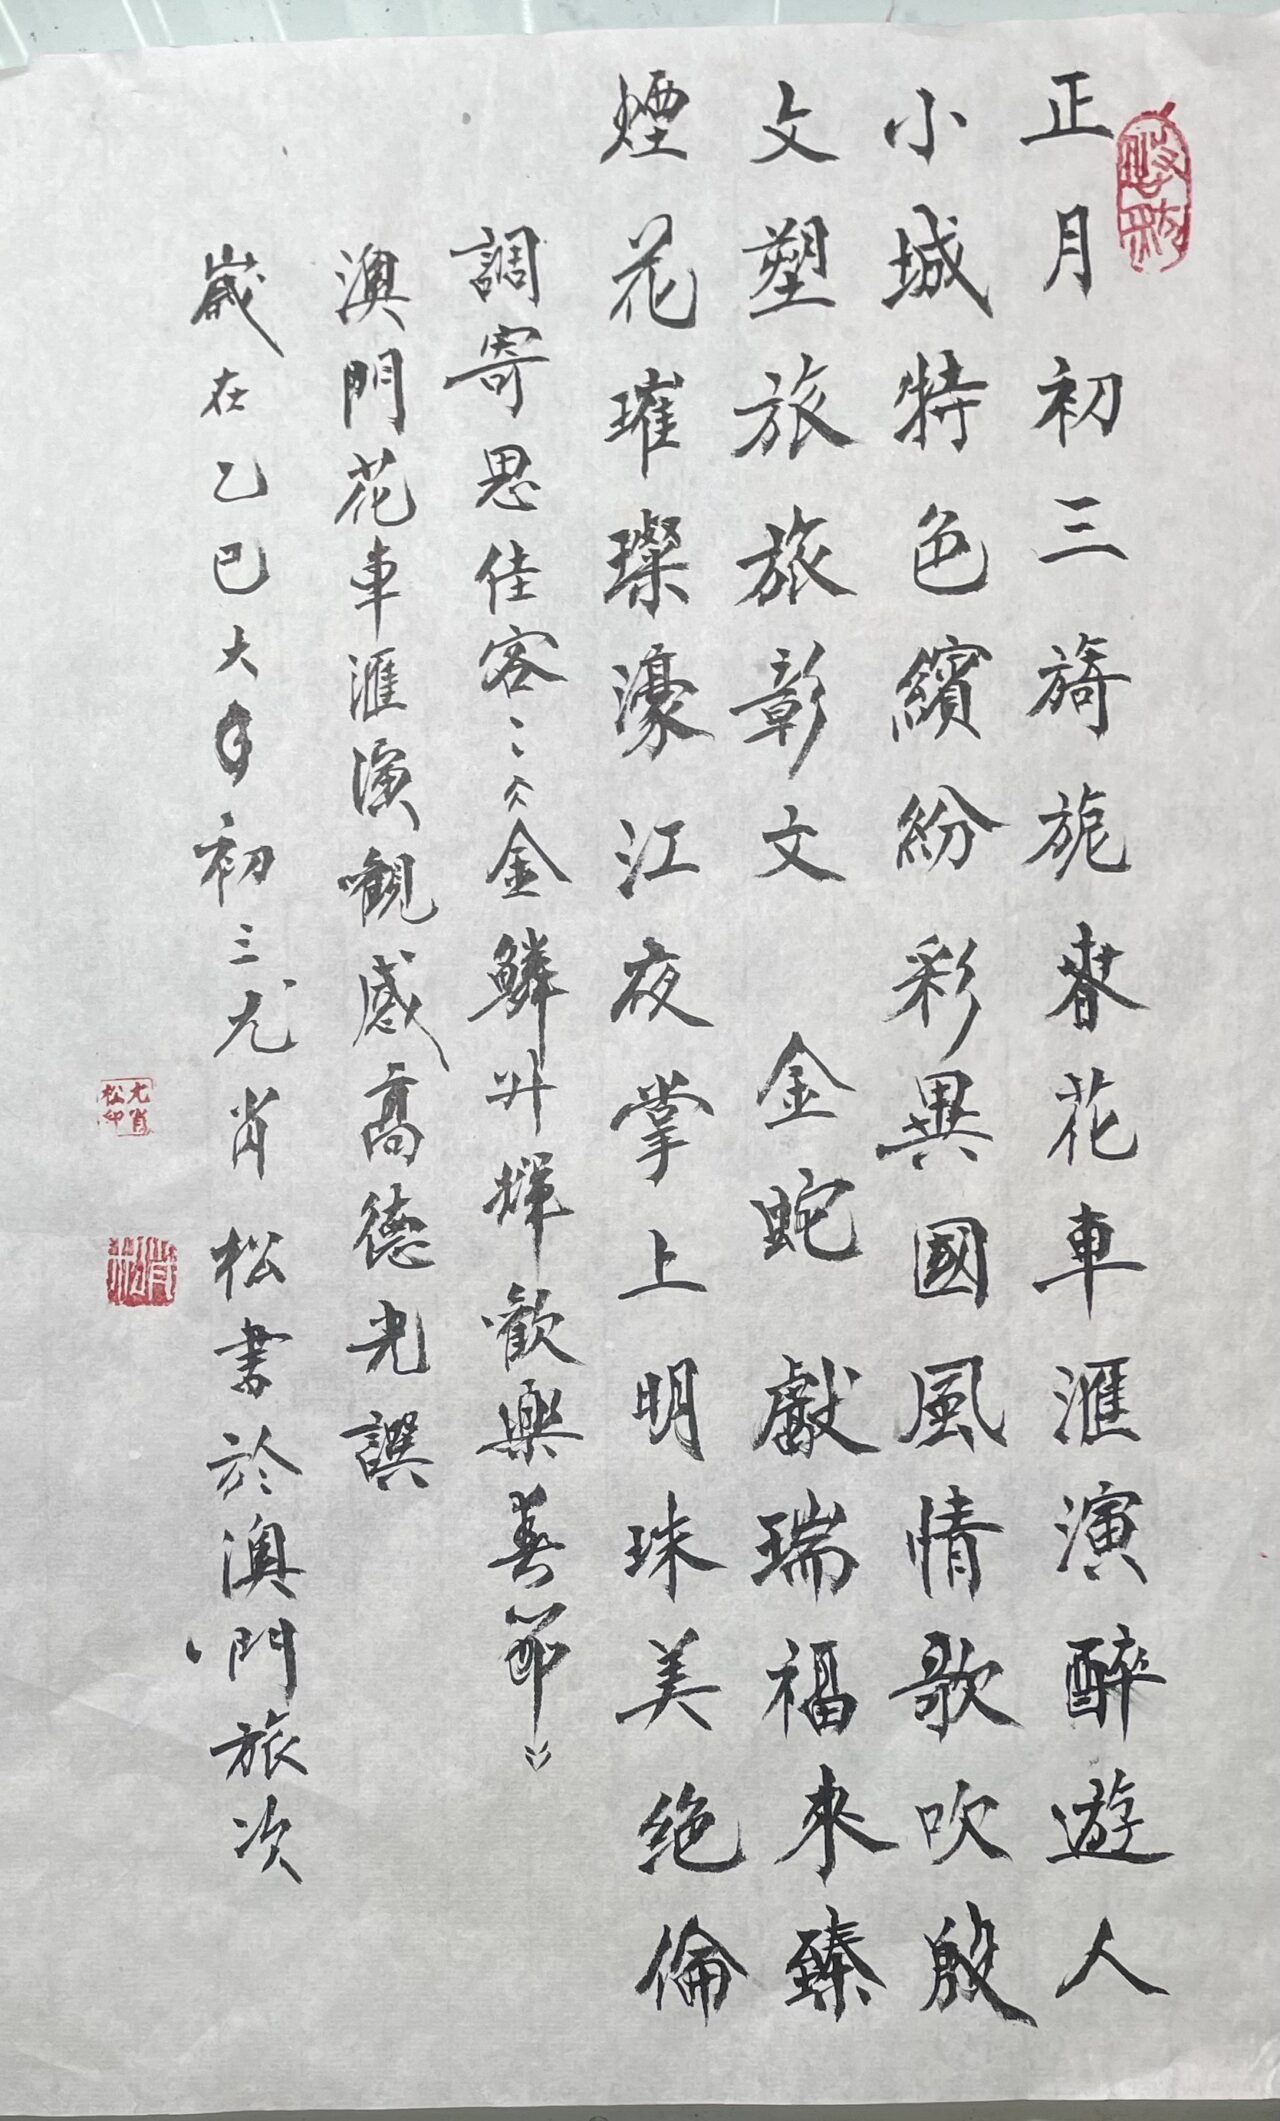 正月初三旖旎春花車滙演醉遊人
小城特色繽紛彩異國風情歌吹殷
文塑旅旅彰文金蛇獻瑞福來臻
煙花璀璨濠江夜掌上明珠美绝倫
調寄思佳客金鱗升輝歡樂春節
澳門花車滙演觀感高德光譔
歲在乙巳大年初三尤肖松書於澳門旅次
尤肖松印
肖松